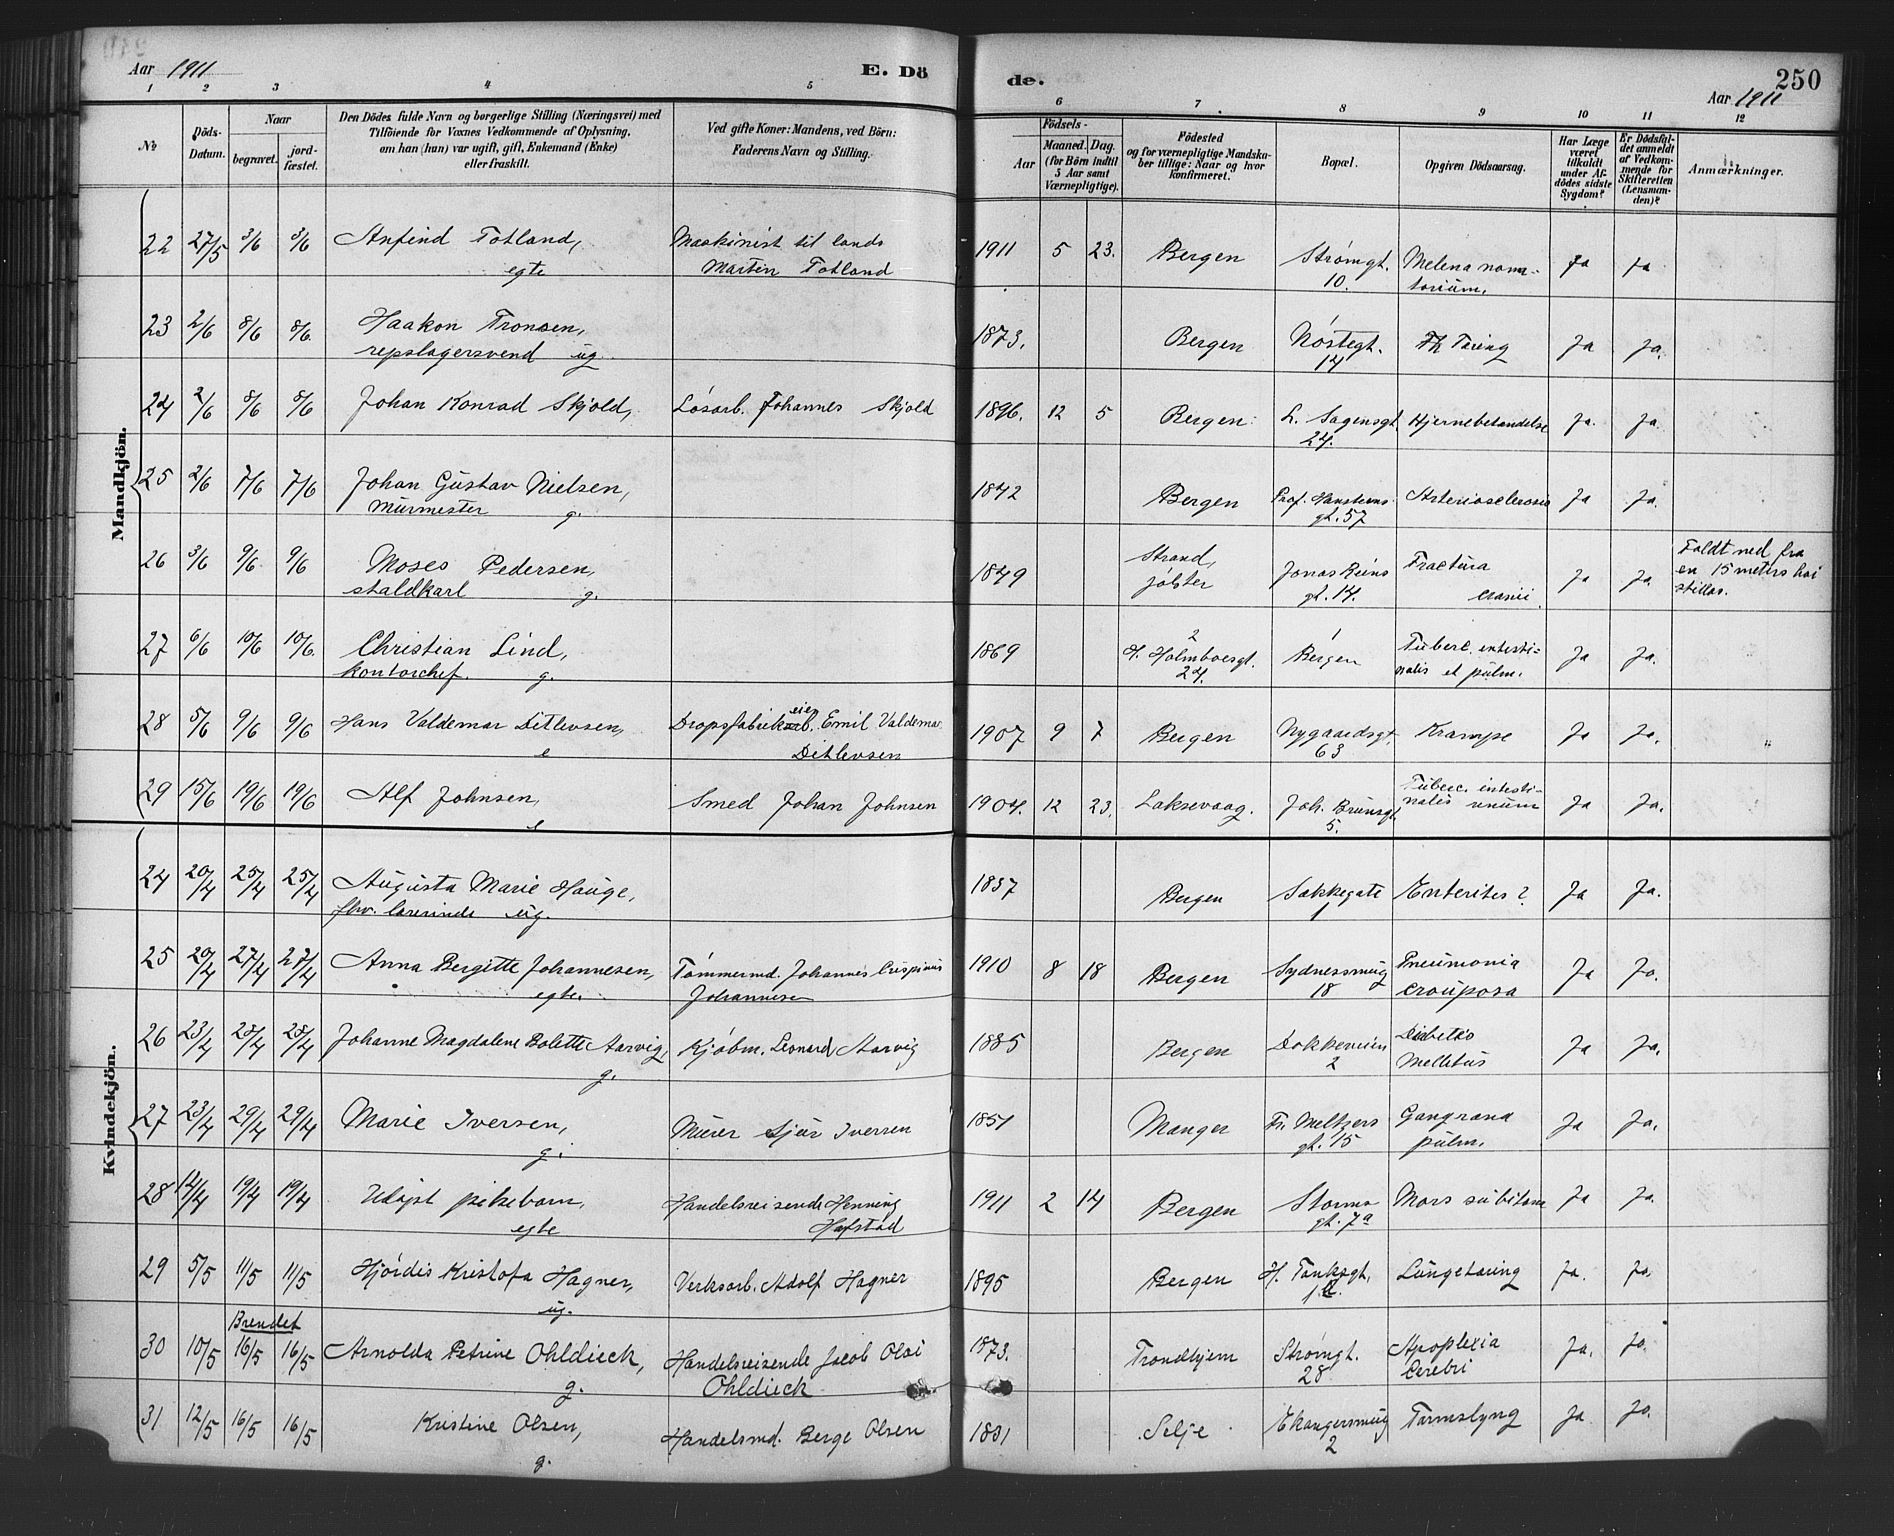 Aar 1911
E. Dö
de.
250
Aar 1911
1 2 3 4 5 6 7 8 9 10 11 12
No
Döds-Datum.
Naar
begravet.
jord-fæstet.
Den Dödes fulde Navn og borgerlige Stilling (Næringsvei) med
Tilföiende for Voxnes Vedkommende af Oplysning,
om han (hun) var ugift, gift, Enkemand (Enke)
eller fraskilt.
Ved gifte Koner: Mandens, ved Börn:
Faderens Navn og Stilling.
Födsels-
Aar
Maaned. Dag.
(for Börn indtil
5 Aar samt
Værnepligtige).
Födested
og for værnepligtige Mandska-
ber tillige: Naar og hvor
konfirmeret.
Bopæl.
Opgiven Dödsaarsag.
Har Læge
været
tilkaldt
under Af-
dödes sidste
Sygdom?
Er Dödsfal-
det anmeldt
af Vedkom-
mende for
Skifteretten
(Lensman-
den)?
Anmærkninger.
Mandkjön.
22 27/5 3/6 3/6 Anfind Totland, Maskinist til lands 1911 5 23. Bergen Strømgt. Melena nona- Ja Ja
egte Martin Totland 10. torium.
23 2/6 8/6 8/6 Haakon Tronsen, 1873. Bergen Nøstegt. Th Tæring Ja Ja.
repslagersvend ug. 14
24 2/6 8/6 8/6 Johan Konrad Skjold, Løsarb. Johannes Skjold 1896. 12 5 Bergen. L. Sagensgt. Hjernebetændelse Ja. Ja.
24.
25 2/6 7/6 7/6 Johan Gustav Nielsen, 1842 Bergen Prof. Hansteens Arteriosclerosis Ja Ja.
Murmester g. gt. 57
26 3/6 9/6 9/6 Moses Pedersen, 1849 Strand, Jonas Reins Fractura Ja Ja. Faldt ned fra
staldkarl g. jølster gt. 14. cranii. en 15 meters høi
stillas.
27 6/6 10/6 10/6 Christian Lind, 1869 2 H. Holmboesgt. 1 Bergen Tuberc. intesti- Ja Ja.
kontorchef. g. 24. nalis et pulm.
28 5/6 9/6 9/6 Hans Valdemar Ditlevsen, Dropsfabrikeier Emil Valdemar 1907 9 7 Bergen Nygaardsgt. Krampe Ja Ja.
e Ditlevsen 63
29 15/6 19/6 19/6 Alf Johnsen, Smed Johan Johnsen 1904. 12 23. Laksevaag. Joh. Brunsgt. Tuberc. intesti- Ja Ja.
e 5. nalis
Kvindekjön.
24 20/4 25/4 25/4 Augusta Marie Hauge, 1837 Bergen Sækkegate Enterites? Ja Ja.
fhv. lærerinde ug. 1
25 20/4 27/4 27/4 Anna Bergitte Johannesen, Tømmermd. Johannes Crispinus 1910 8 18 Bergen Sydnessmug Pneumonia Ja Ja.
egte. Johannesen 18 crouposa
26 23/4 25/4 25/4 Johanne Magdalene Bolette Aarvig, Kjøbm. Leonard Aarvig 1885 Bergen Dokkeveien Diabetes Ja Ja.
g. 2 Mellitus
27 23/4 29/4 29/4 Marie Iversen, Murer Sjur Iversen 1851 Manger Fr. Meltzers Gangræna Ja Ja.
g. gt. 15 pulm.
28 14/4 19/4 19/4 Udøpt pikebarn, Handelsreisende Henning 1911 2 14 Bergen Storms Mors subitane Ja Ja.
egte Hafstad gt. 7a
29 5/5 11/5 11/5 Hjørdis Kristofa Hagner, Verksarb. Adolf Hagner 1895 Bergen H. Tanksgt. Lungetæring Ja. Ja.
ug.
Brendet
30 10/5 16/5 16/5 Arnolda Petrine Ohldieck, Handelsreisende Jacob Olai 1873. Trondhjem Strømgt. Apoplexia Ja. Ja.
g. Ohldieck 28 Cerebri
31 12/5 16/5 16/5 Kristine Olsen, Handelsmd. Berge Olsen 1831 Selje Ekangersmug Tarmslyng Ja Ja.
g. 2